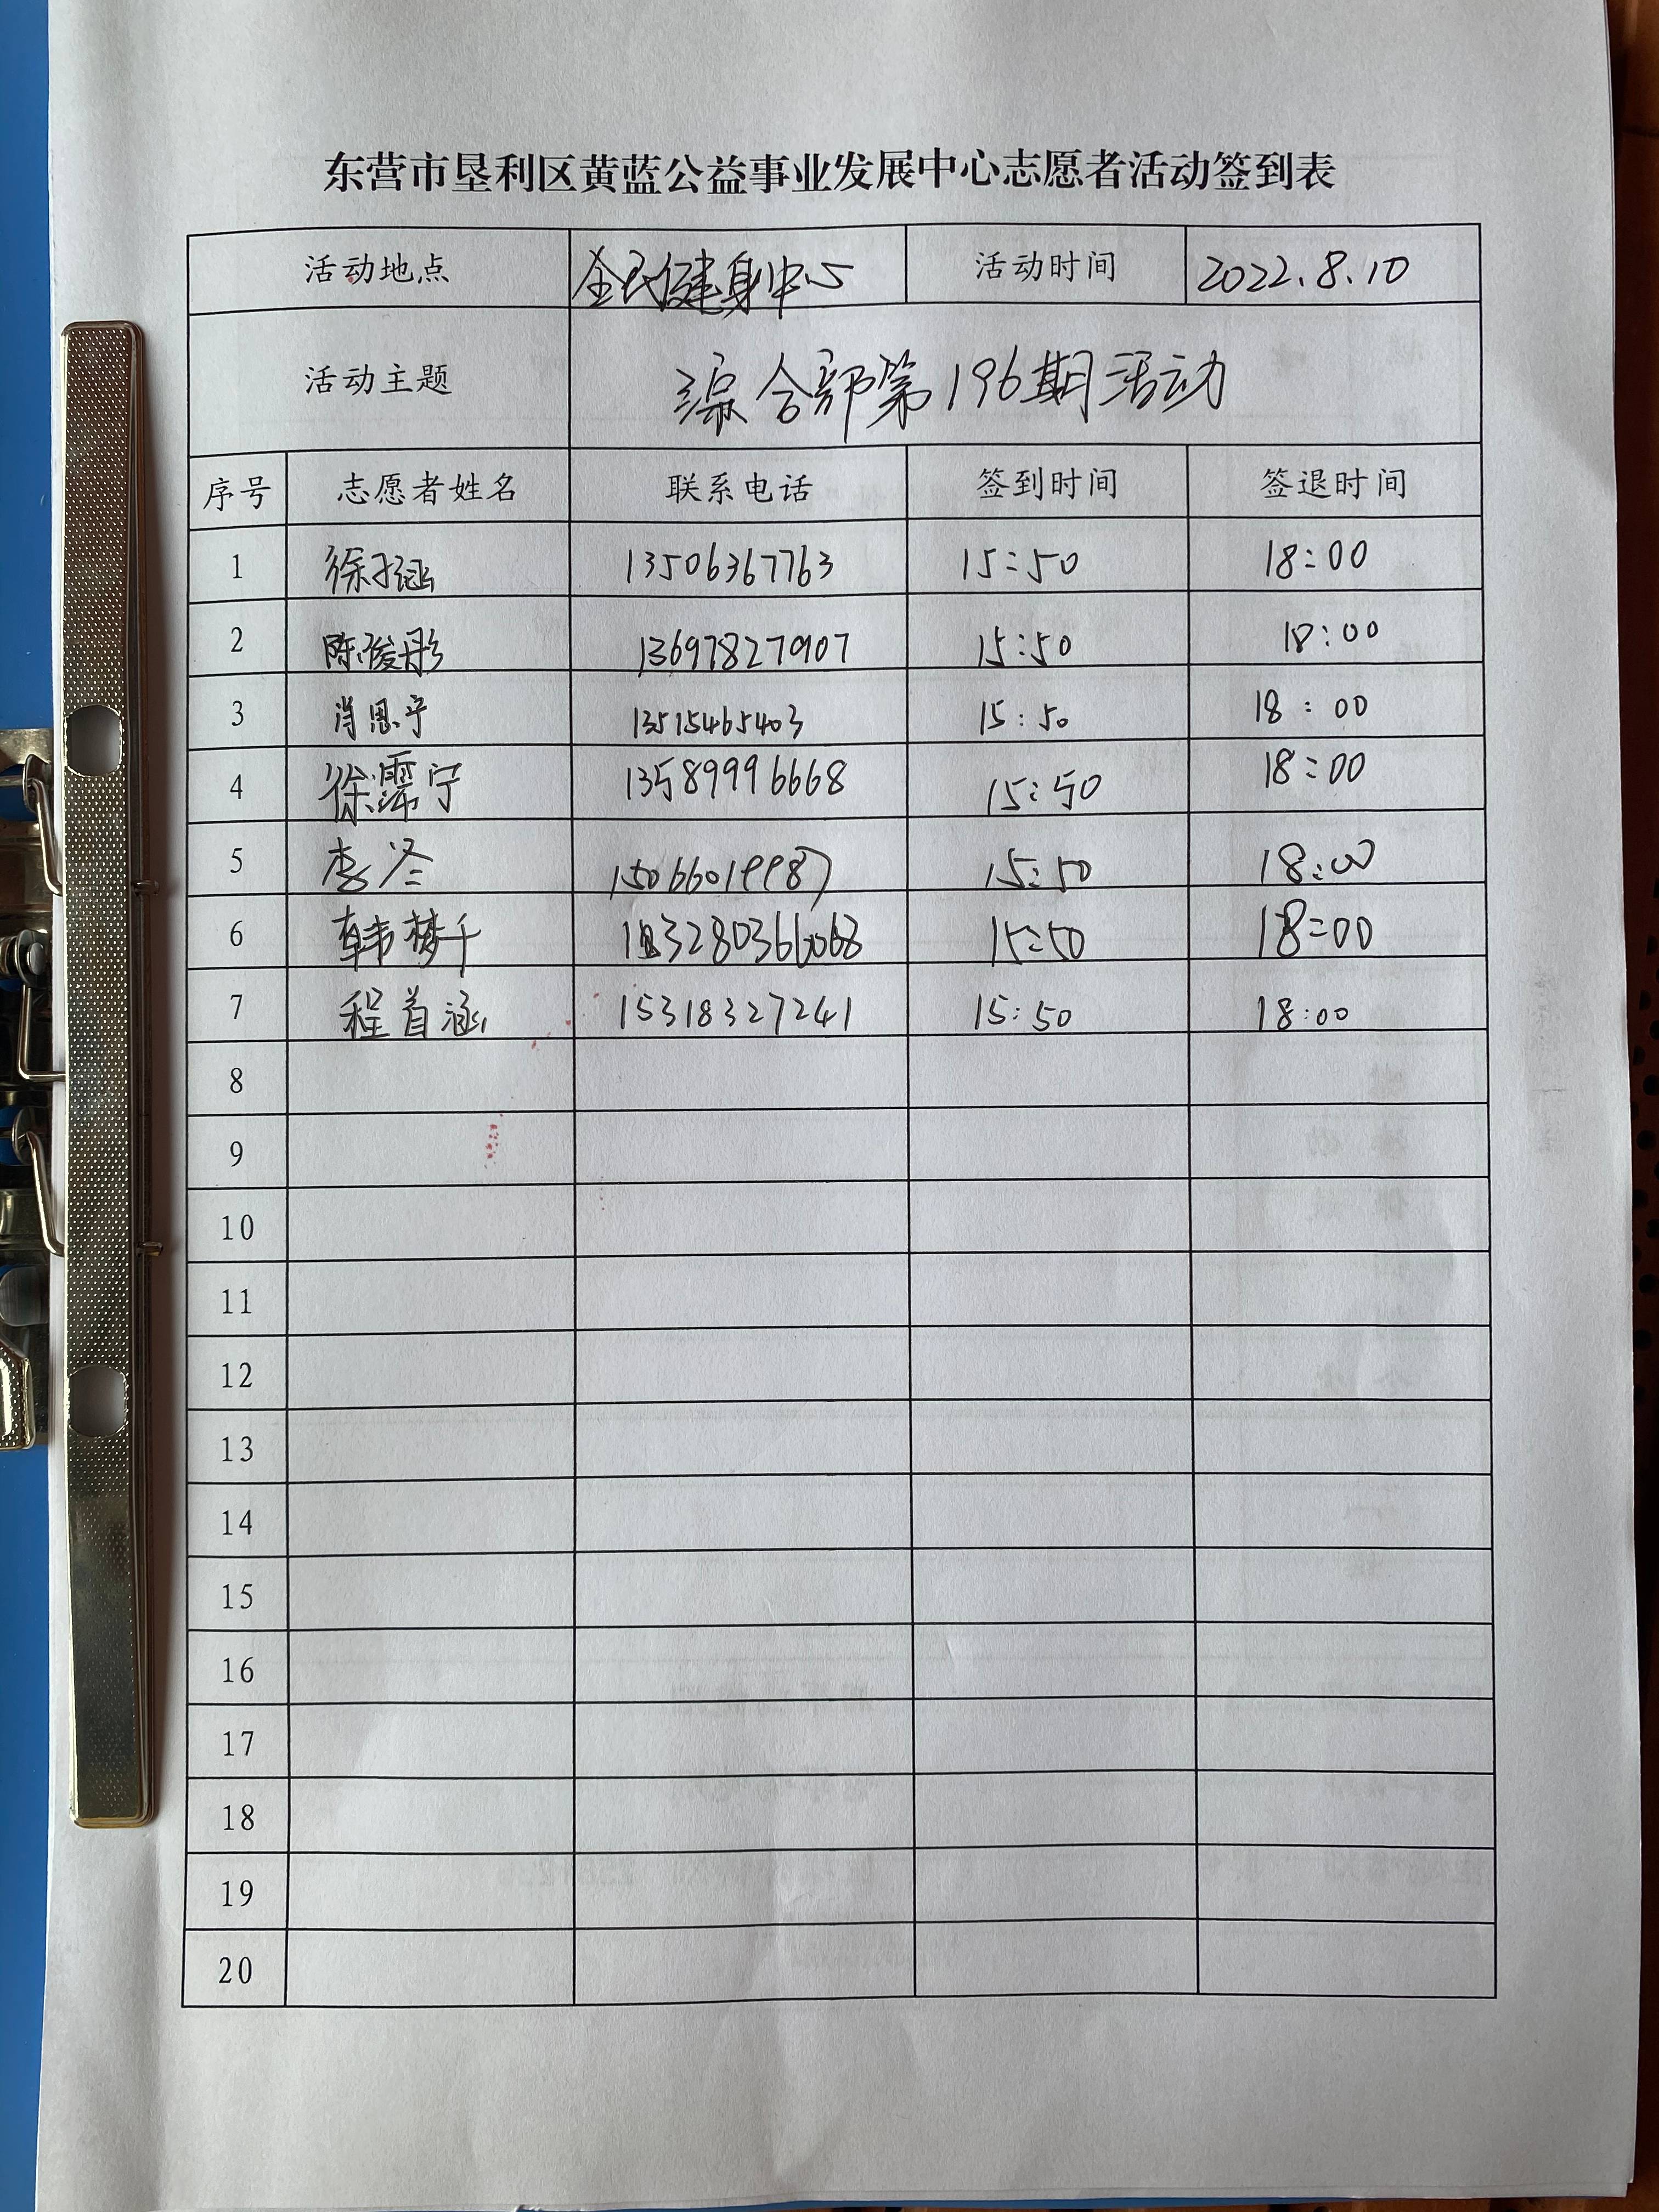 东营市垦利区黄蓝公益事业发展中心志愿者活动签到表
活动地点 全民健身中心 活动时间 2022.8.10
活动主题 综合部第196期活动
序号 志愿者姓名 联系电话 签到时间 签退时间
1 徐子涵 13506367763 15:50 18:00
2 陈俊彤 13697827907 15:50 18:00
3 肖思宁 13515465403 15:50 18:00
4 徐霈宁 13589996668 15:50 18:00
5 李冬 15066019987 15:50 18:00
6 韩梦千 15:50 18:00
7 程首涵 15318327241 15:50 18:00
8
9
10
11
12
13
14
15
16
17
18
19
20